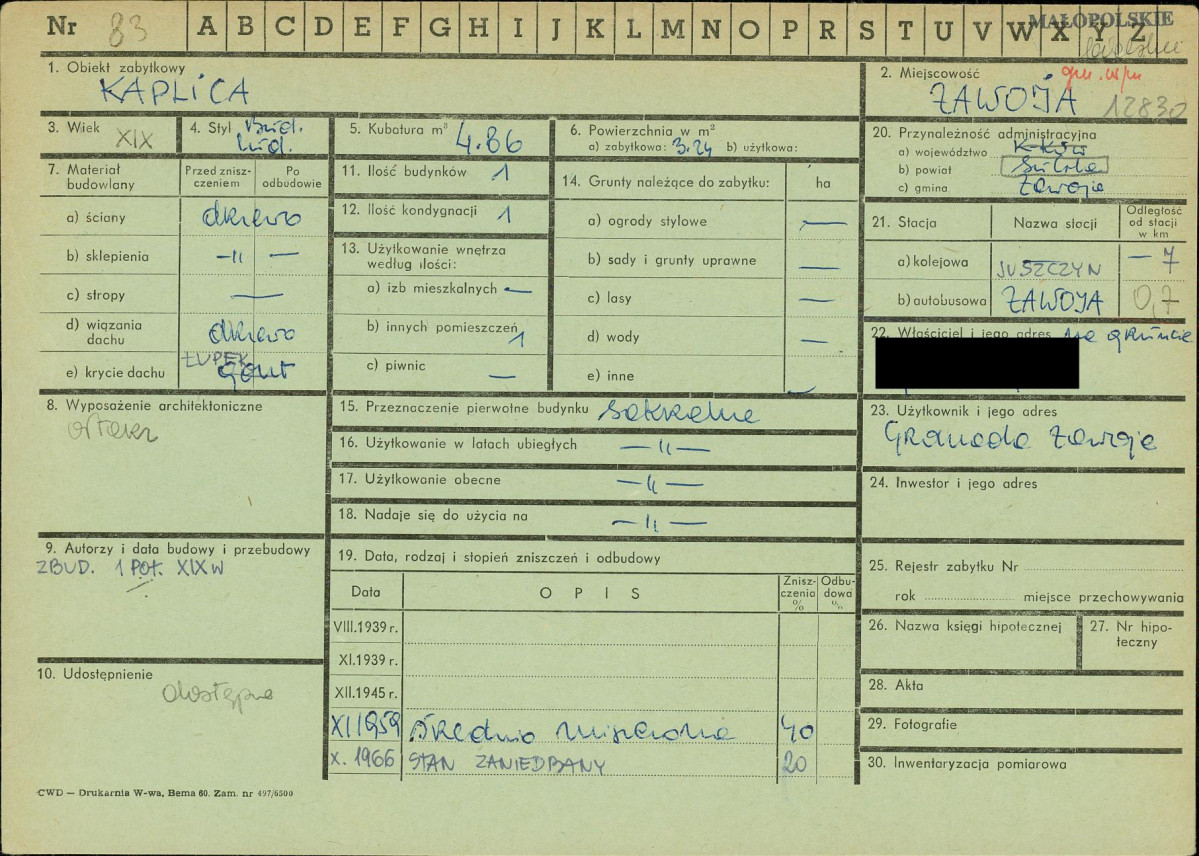 Nr 83 A B C D E F G H I J K L M N O P R S T U V W X Y Z
MAŁOPOLSKIE
1. Obiekt zabytkowy
KAPLICA
2. Miejscowość
ZAWOJA 12830
3. Wiek XIX
4. Styl bud. lud.
5. Kubatura m³ 4.86
6. Powierzchnia w m²
a) zabytkowa: 3.24 b) użytkowa:
7. Materiał budowlany
Przed zniszczeniem
Po odbudowie
a) ściany drewo
b) sklepienia -"- —
c) stropy —
d) wiązania dachu drewo
e) krycie dachu ŁUPEK gont
8. Wyposażenie architektoniczne
ołtarz
9. Autorzy i data budowy i przebudowy
ZBUD. 1 POŁ. XIX W
10. Udostępnienie
dostępna
11. Ilość budynków 1
12. Ilość kondygnacji 1
13. Użytkowanie wnętrza według ilości:
a) izb mieszkalnych —
b) innych pomieszczeń 1
c) piwnic —
14. Grunty należące do zabytku: ha
a) ogrody stylowe —
b) sady i grunty uprawne —
c) lasy —
d) wody —
e) inne —
15. Przeznaczenie pierwotne budynku sakralne
16. Użytkowanie w latach ubiegłych —"—
17. Użytkowanie obecne —"—
18. Nadaje się do użycia na —"—
19. Data, rodzaj i stopień zniszczeń i odbudowy
Data OPIS Zniszczenia % Odbudowa %
VIII.1939 r.
XI.1939 r.
XII.1945 r.
XI 1959 średnio niszczone 40
X. 1966 STAN ZANIEDBANY 20
20. Przynależność administracyjna
a) województwo K-ków
b) powiat Sucha
c) gmina Zawoja
21. Stacja Nazwa stacji Odległość od stacji w km
a) kolejowa JUSZCZYN — 7
b) autobusowa ZAWOJA 0,7
22. Właściciel i jego adres na gruncie
23. Użytkownik i jego adres
Gromada Zawoja
24. Inwestor i jego adres
25. Rejestr zabytku Nr
rok miejsce przechowywania
26. Nazwa księgi hipotecznej
27. Nr hipoteczny
28. Akta
29. Fotografie
30. Inwentaryzacja pomiarowa
CWD — Drukarnia W-wa, Bema 60. Zam. nr 497/6500